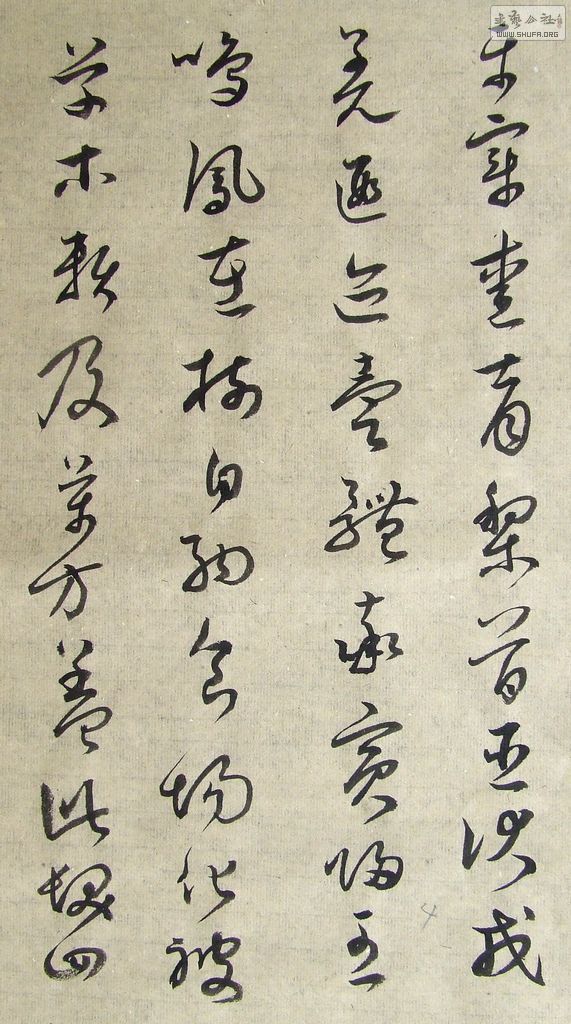 平章愛育黎首臣伏戎
羌遐迩壹體率賓歸王
鳴鳳在樹白駒食場化被
草木賴及萬方蓋此髮四
書藝公社
WWW.SHUFA.ORG